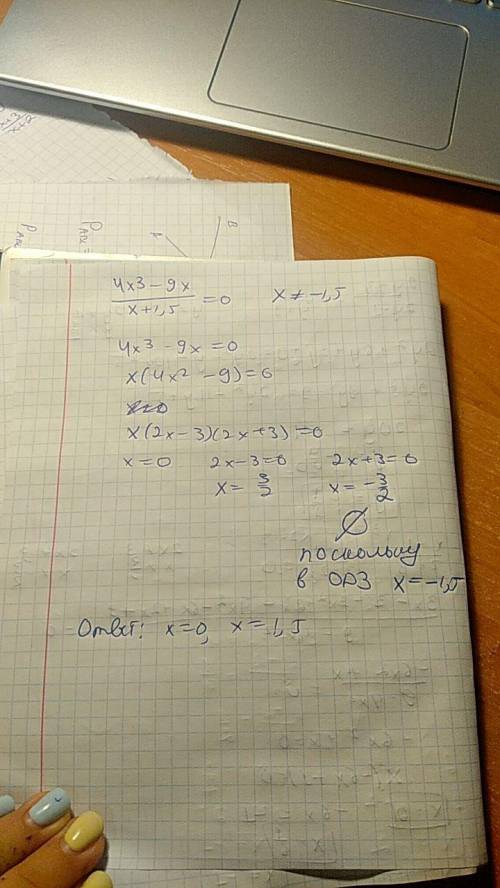 4x3 - 9x / x + 1,5 = 0 x ≠ -1,5
4x3 - 9x = 0
x(4x² - 9) = 0
x(2x - 3)(2x + 3) = 0
x = 0 2x - 3 = 0 2x + 3 = 0
x = 3/2 x = -3/2
∅
поскольку
в ОДЗ x = -1,5
Ответ: x = 0, x = 1,5